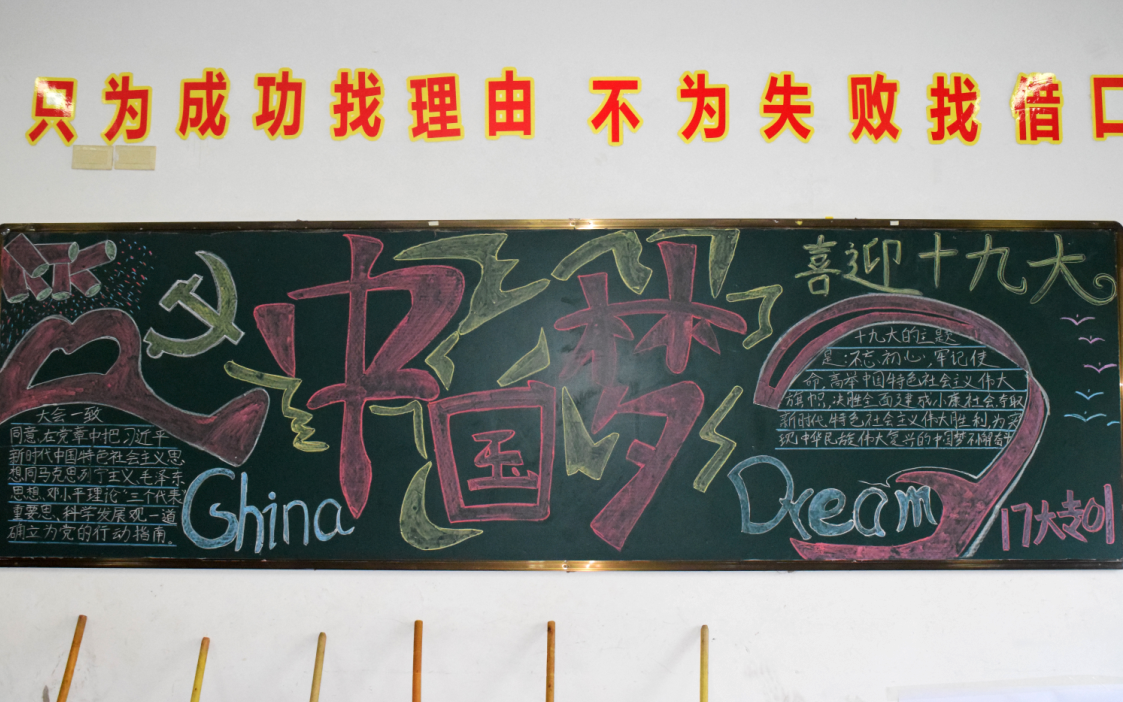 只为成功找理由 不为失败找借口
喜迎十九大
中国梦
China
Dream
十九大的主题
是:不忘初心,牢记使
命,高举中国特色社会主义伟大
旗帜,决胜全面建成小康社会,夺取
新时代特色社会主义伟大胜利,为实
现中华民族伟大复兴的中国梦不懈奋斗
大会一致
同意,在党章中把习近平
新时代中国特色社会主义思
想同马克思列宁主义、毛泽东
思想、邓小平理论"三个代表
重要思、科学发展观一道
确立为党的行动指南。
17大专刂